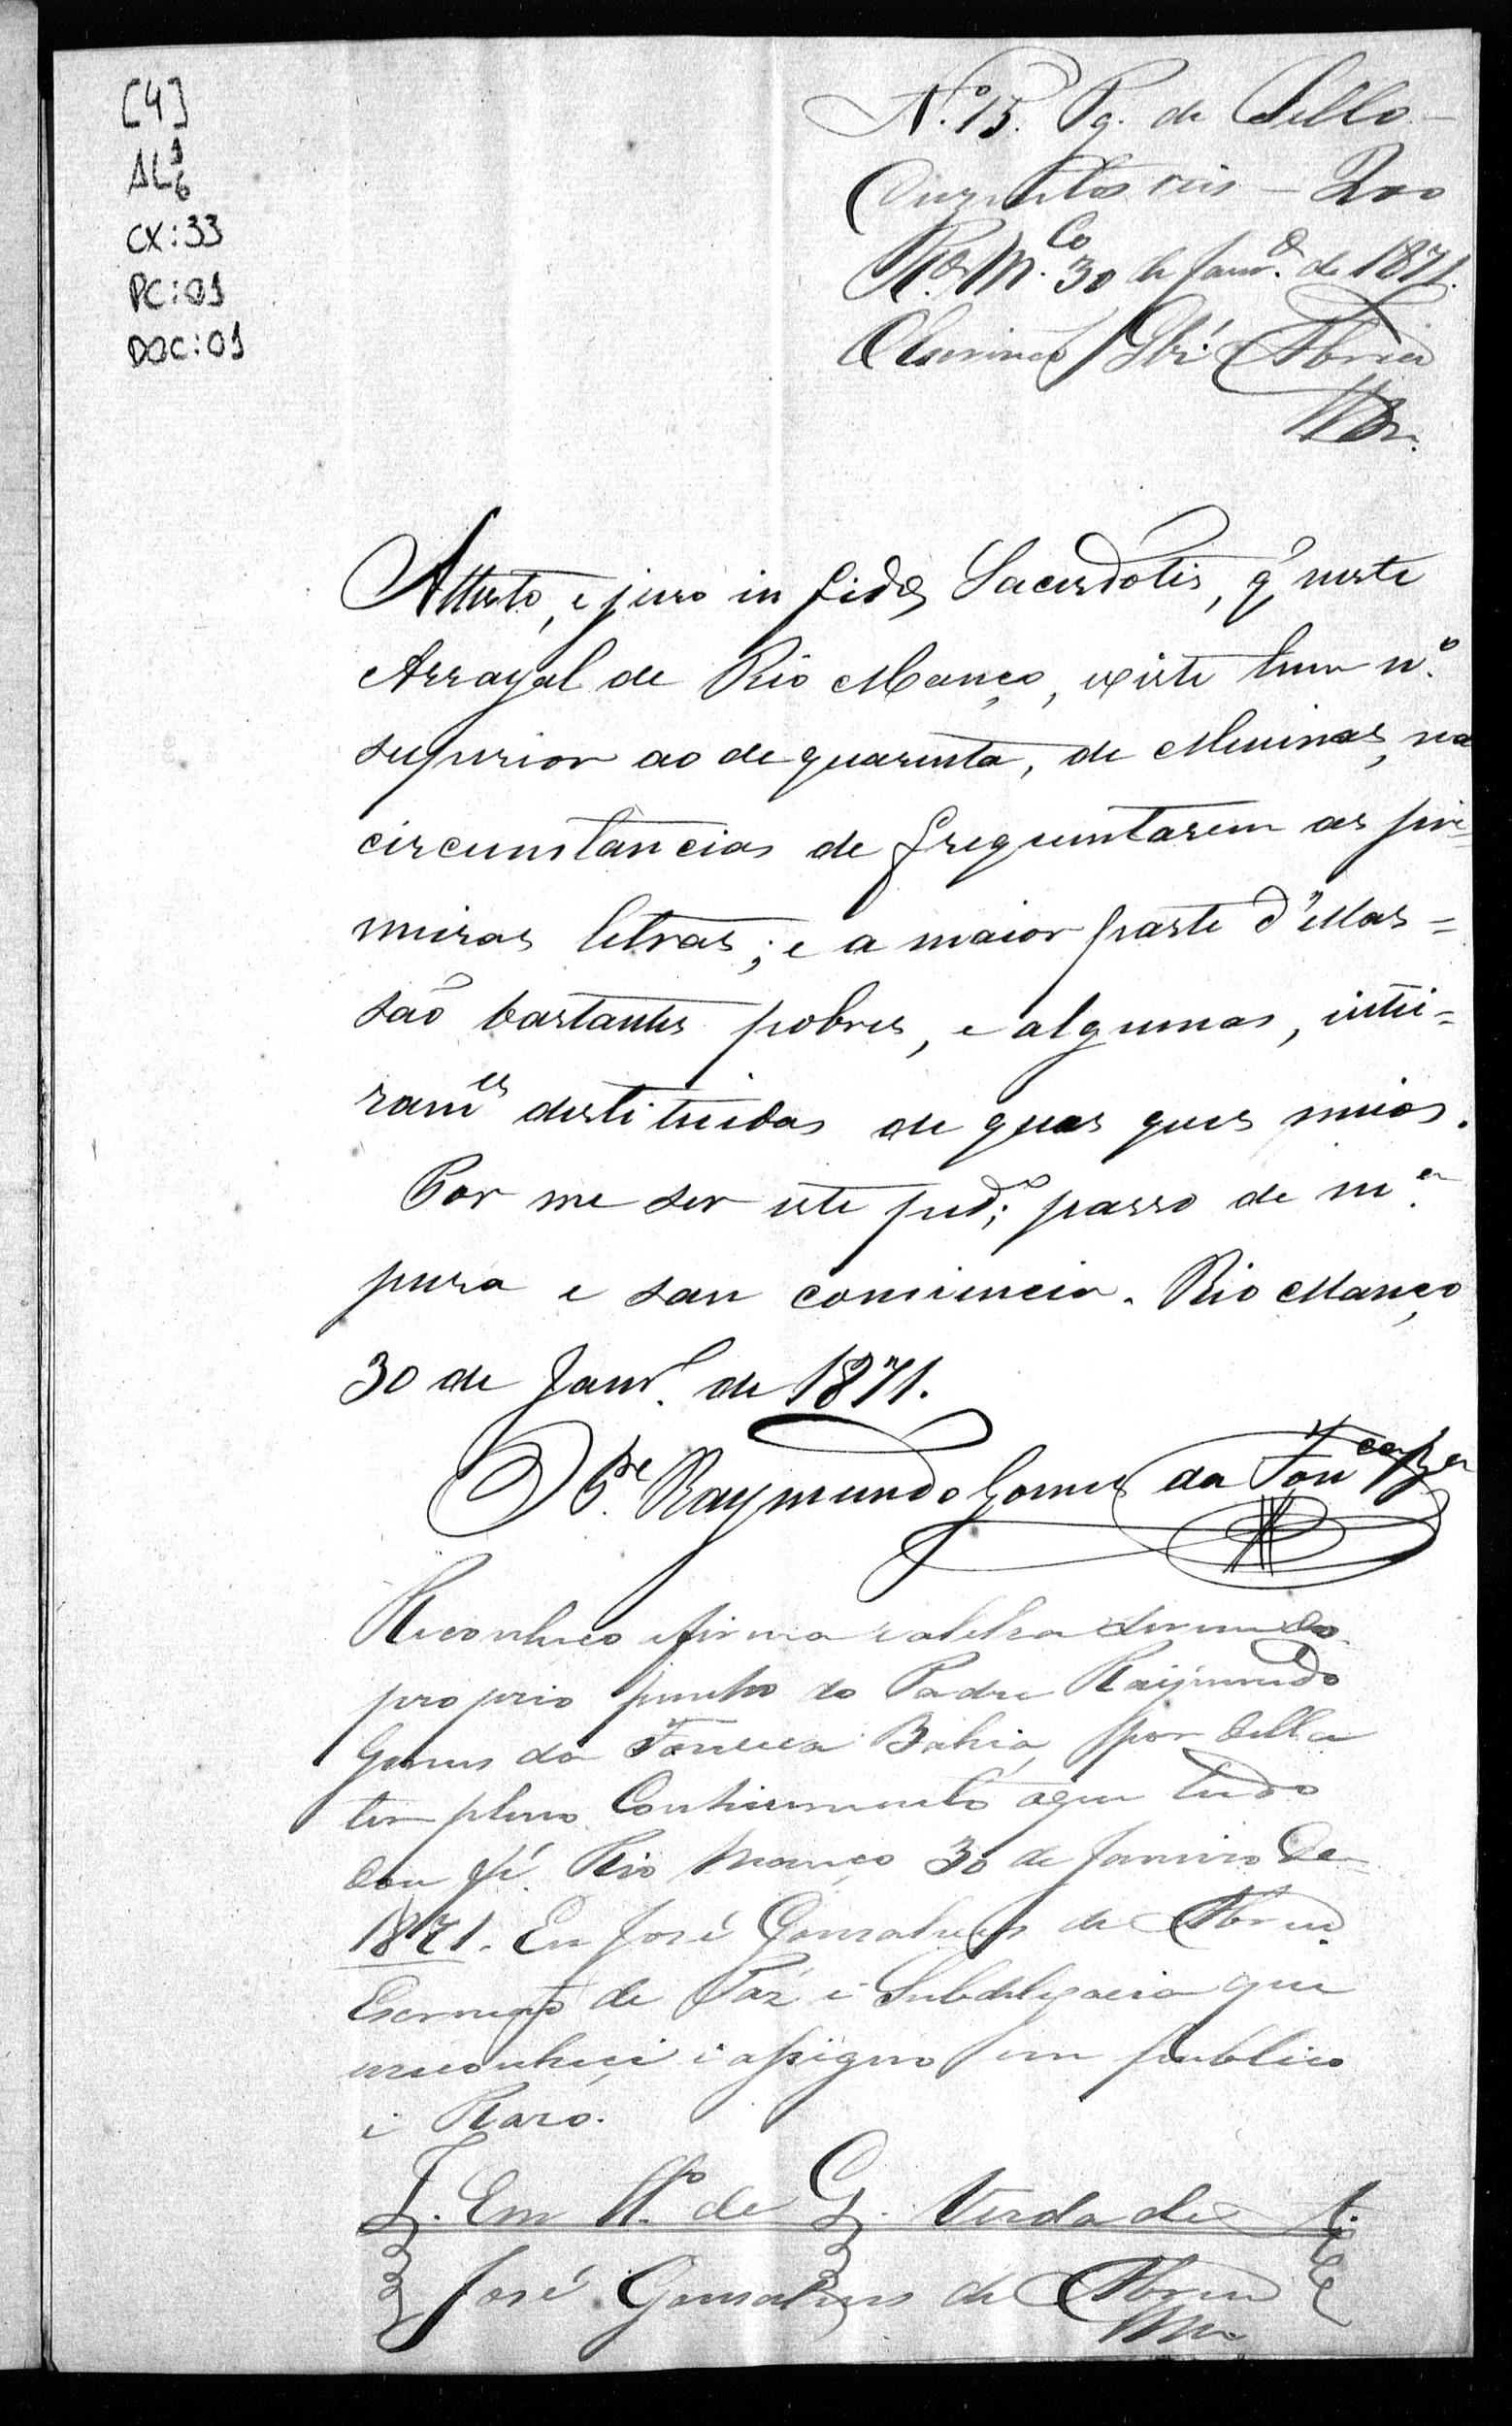 [4]
AL
CX:33
PC:01
DOC:01
N.º 15. Pg. de Sello
Duzentos reis — 200
R.º M.ço 30 de Janr.º de 1871.
Abreu
Attesto, e juro in fide Sacerdotis, q' neste
Arrayal de Rio Manço, existe hum n.º
superior ao de quarenta, de Meninas, nas
circunstancias de frequentarem as pri-
meiras letras; e a maior parte d'ellas =
são bastantes pobres, e algumas, intei=
ram.es destituidas de quaes quer meios.
Por me ser este ped.º; passo de m.ª
pura e san consciencia. Rio Manço
30 de Janr.º de 1871.
P.e Raymundo Gomes da Fonc.ca B.a
Reconheço a firma e a letra do
proprio punho do Padre Raÿmundo
Gomes da Fonceca Bahia, por della
ter pleno Conhicimento do que tudo
dou fé. Rio Manço 30 de Janeiro de
1871. Eu José Gonsalves de Abreu
Escrivão de Paz e Subdelegacia que
o reconheci i assigno em publico
i Razo.
Em tt.º de Verdade
José Gonsalves de Abreu